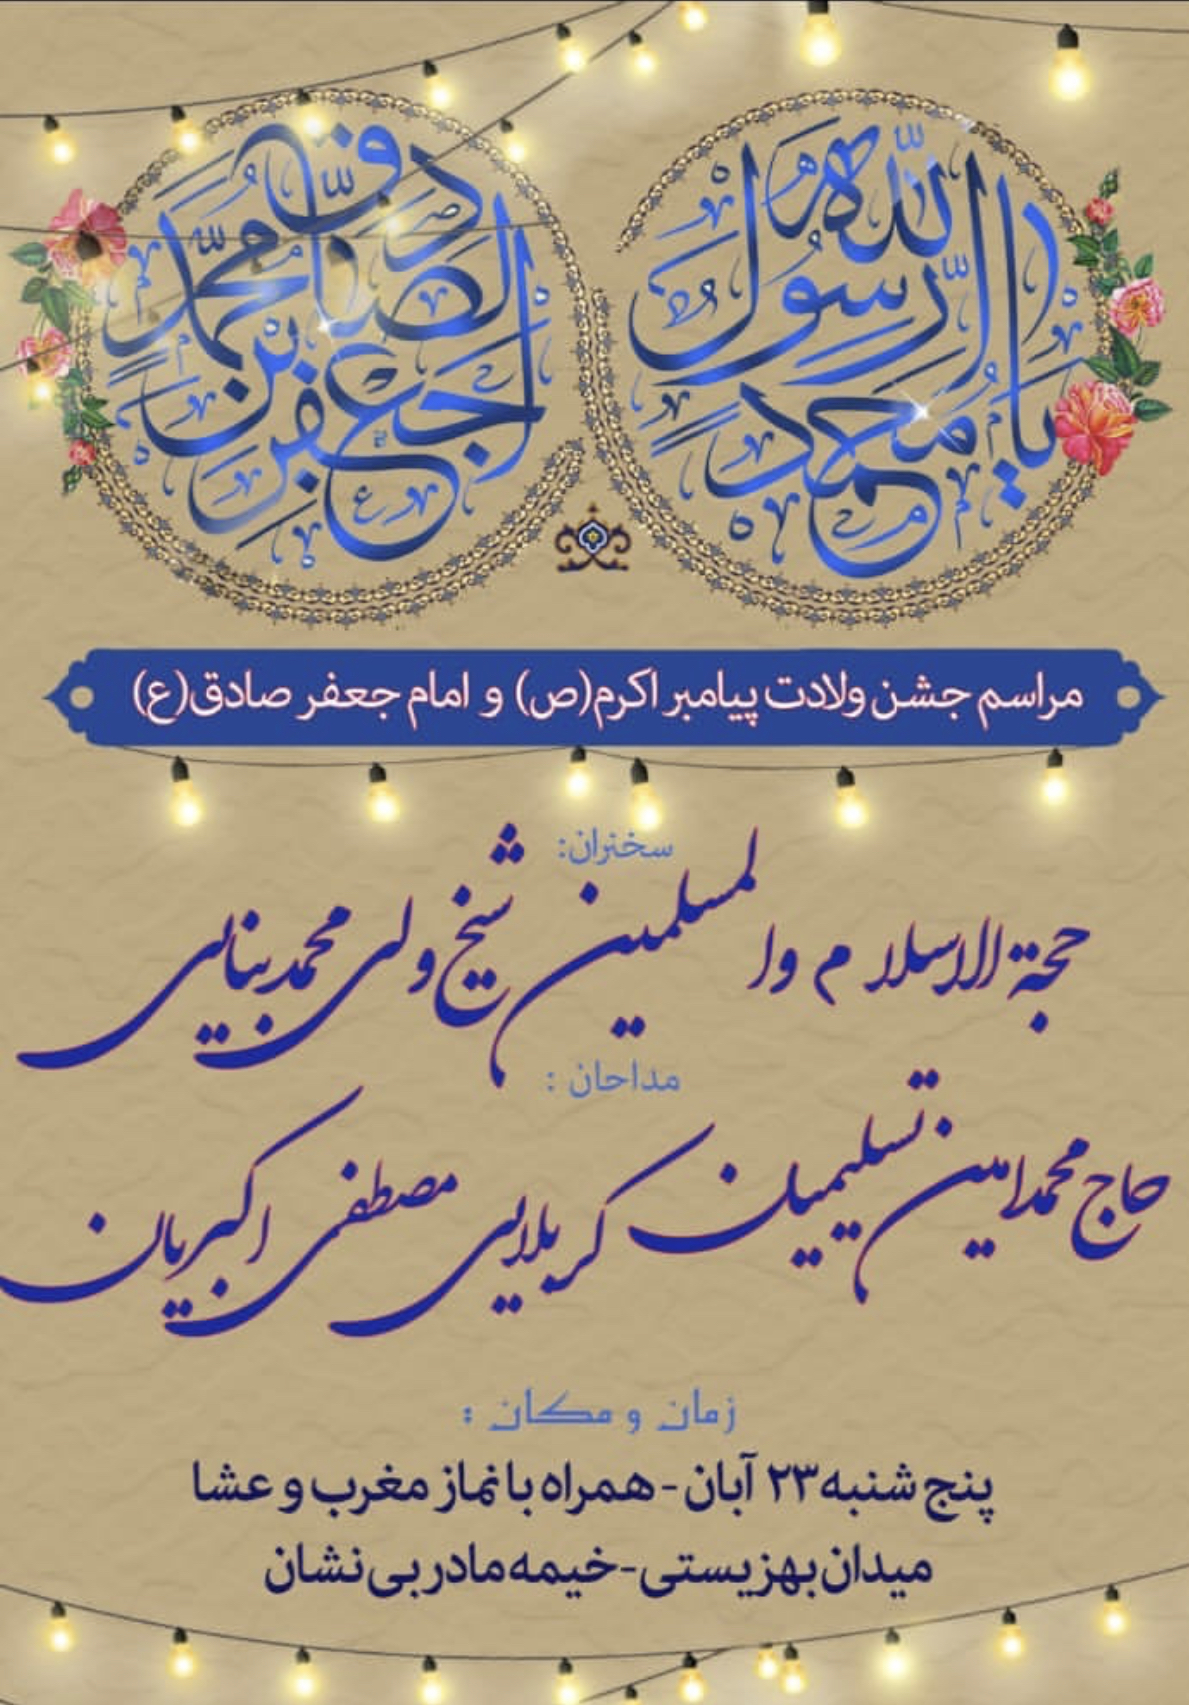 یا محمد
یا رسول الله
جعفر بن محمد
الصادق
مراسم جشن ولادت پیامبر اکرم(ص) و امام جعفر صادق(ع)
سخنران:
حجة الاسلام والمسلمین شیخ ولی محمد بنایی
مداحان :
حاج محمد امین تسلیمیان کربلایی مصطفی اکبریان
زمان و مکان :
پنج شنبه ۲۳ آبان - همراه با نماز مغرب و عشا
میدان بهزیستی-خیمه مادر بی نشان